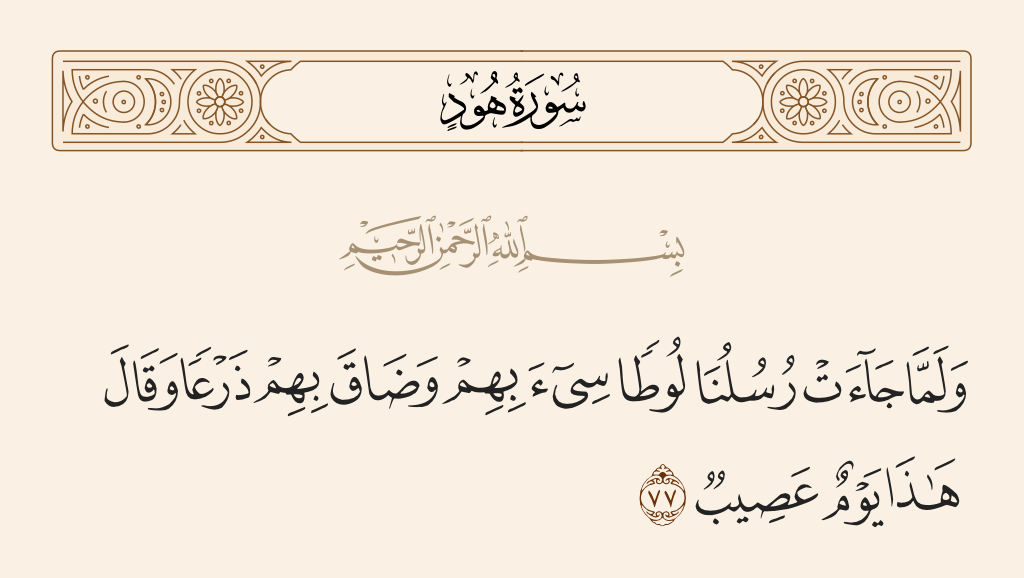 سُورَةُ هُودٍ
بِسْمِ ٱللَّهِ ٱلرَّحْمَٰنِ ٱلرَّحِيمِ
وَلَمَّا جَآءَتْ رُسُلُنَا لُوطًا سِىٓءَ بِهِمْ وَضَاقَ بِهِمْ ذَرْعًا وَقَالَ
هَٰذَا يَوْمٌ عَصِيبٌ ٧٧